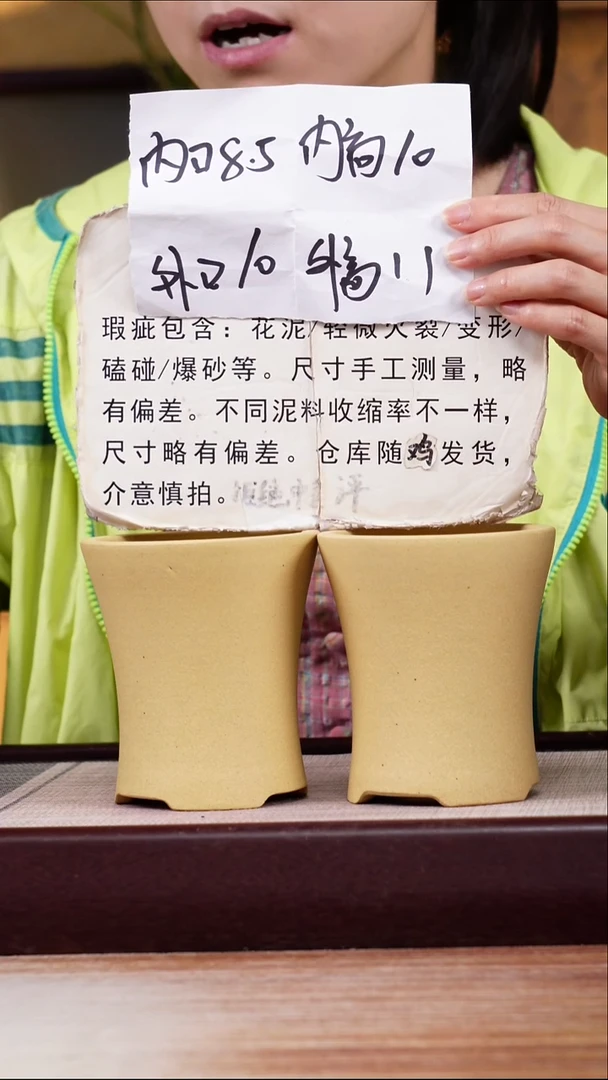 内口8.5 内高10
外口10 外高11
瑕疵包含：花泥/轻微火裂/变形/
磕碰/爆砂等。尺寸手工测量，略
有偏差。不同泥料收缩率不一样，
尺寸略有偏差。仓库随鸡发货，
介意慎拍。